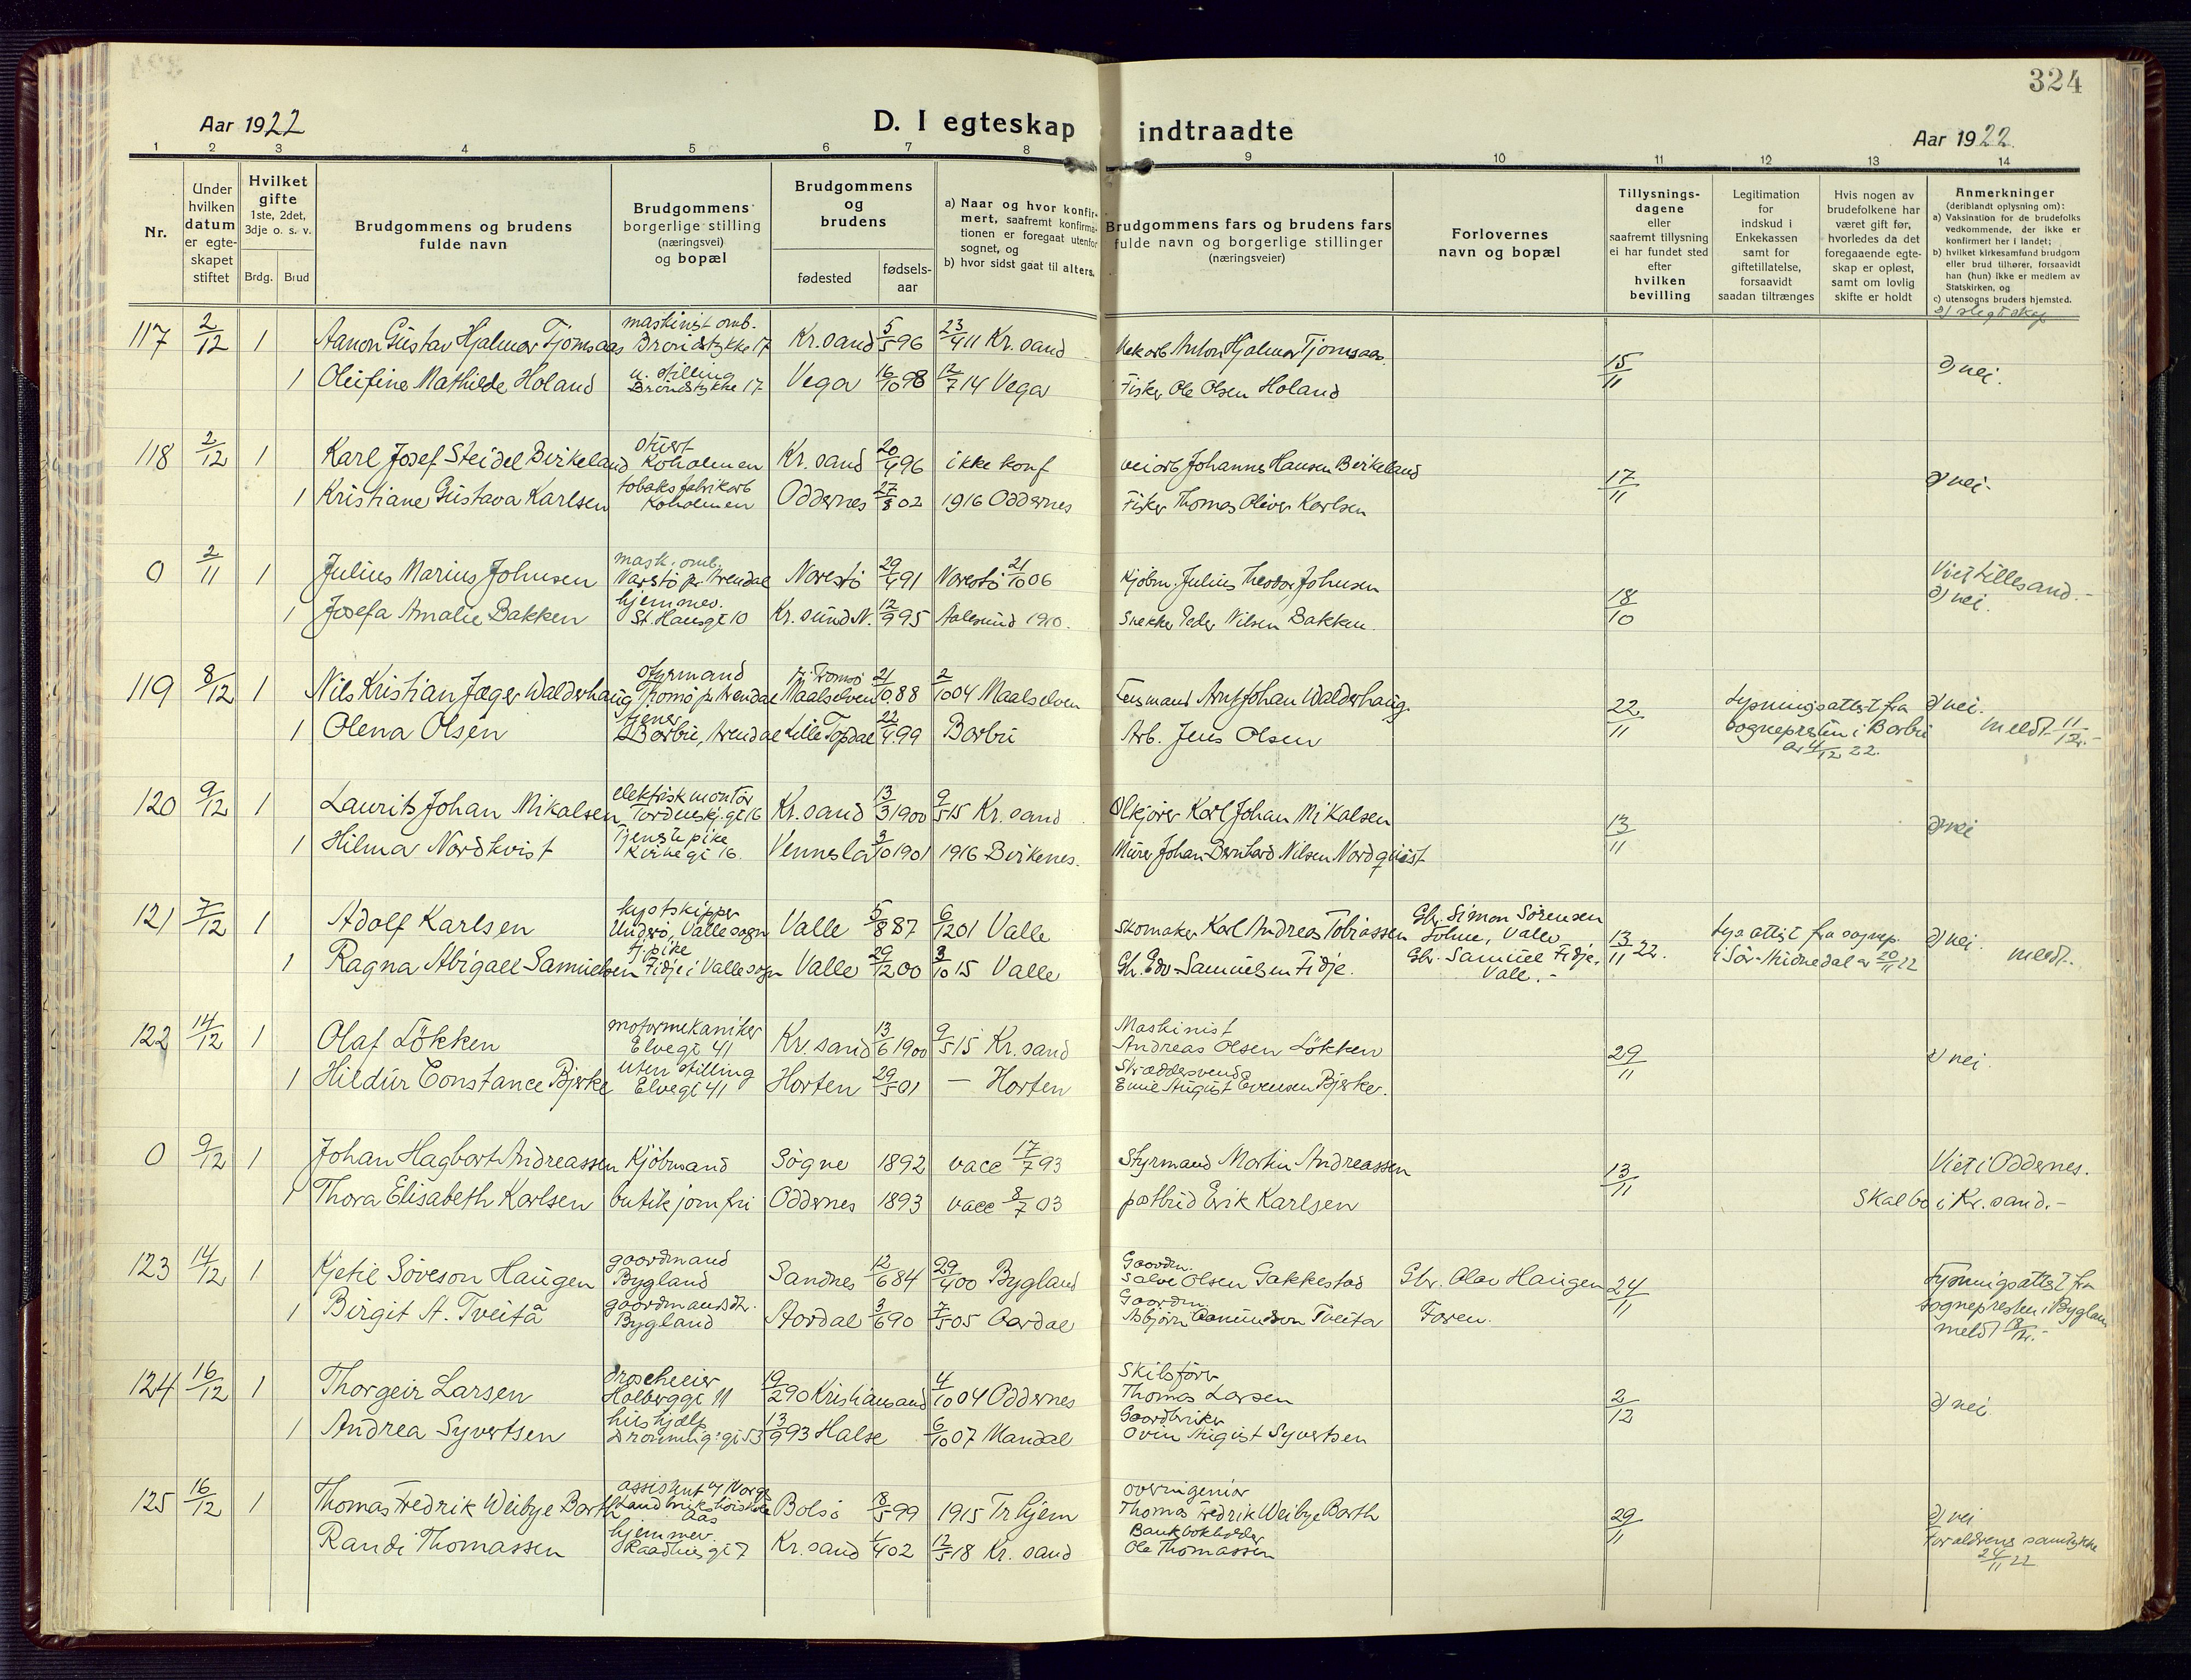 324
Aar 1922
D. I egteskap indtraadte
Aar 1922.
1 2 3 4 5 6 7 8 9 10 11 12 13 14
Nr.
Under hvilken datum er egteskapet stiftet
Hvilket gifte
1ste, 2det, 3dje o. s. v.
Brdg. Brud
Brudgommens og brudens fulde navn
Brudgommens borgerlige stilling (næringsvei) og bopæl
Brudgommens og brudens
fødested
fødselsaar
a) Naar og hvor konfirmert, saafremt konfirmationen er foregaat utenfor sognet, og
b) hvor sidst gaat til alters.
Brudgommens fars og brudens fars fulde navn og borgerlige stillinger (næringsveier)
Forlovernes navn og bopæl
Tillysningsdagene eller saafremt tillysning ei har fundet sted efter hvilken bevilling
Legitimation for indskud i Enkekassen samt for giftetillatelse, forsaavidt saadan tiltrænges
Hvis nogen av brudefolkene har været gift før, hvorledes da det foregaaende egteskap er opløst, samt om lovlig skifte er holdt
Anmerkninger
(deriblandt oplysning om):
a) Vaksination for de brudefolks vedkommende, der ikke er konfirmert her i landet;
b) hvilket kirkesamfund brudgom eller brud tilhører, forsaavidt han (hun) ikke er medlem av Statskirken, og
c) utensogns bruders hjemsted.
d) slegtskap
117 2/12 1 Aanon Gustav Hjalmar Tjomsaas maskinist omb. Bröndstykke 17 Kr.sand 5/5 96 23/4 11 Kr. sand Mek arb Anton Hjalmar Tjomsaas 15/11 d) nei.
1 Oleifine Mathilde Holand u. stilling Bröndstykke 17 Vega 16/10 98 12/7 14 Vega Fisker Ole Olsen Holand
118 2/12 1 Karl Josef Steidel Birkeland stuert Koholmen Kr. sand 20/4 96 ikke konf veiarb Johannes Hansen Birkeland 17/11 d) nei.
1 Kristiane Gustava Karlsen tobaksfabrikarb Koholmen Oddernes 27/8 02 1916 Oddernes Fisker Thomas Oliver Karlsen
0 2/11 1 Julius Marius Johnsen mask. omb. Narestö pr. Arendal Narestö 29/4 91 Narestö 21/10 06 Kjöbm. Julius Theodor Johnsen 18/10 Viet Lillesand.- d) nei.
1 Josefa Amalie Bakken hjemmev. St. Hansgt 10 Kr. sund N. 12/9 95 Aalesund 1910. Snekker Peder Nilsen Bakken.
119 8/12 1 Nils Kristian Jæger Walderhaug styrmand Tromö pr Arendal pr. Tromsö Maalselven 21/10 88 2/10 04 Maalselven Lensmand Arnt Johan Walderhaug. 22/11 Lysningsattest fra sognepresten i Barbu av 4/12 22. d) nei. meldt 11/12.-
1 Olena Olsen tjener Barbu, Arendal Lille Topdal 22/4 99 Barbu Arb. Jens Olsen
120 9/12 1 Laurits Johan Mikalsen elektrisk montör Tordenskj.gt 16 Kr. sand 13/3 1900 9/5 15 Kr. sand Ölkjörer Karl Johan Mikalsen 13/11 d) nei
1 Hilma Nordkvist Tjenestepike Kirkegt 16. Vennesla 3/10 1901 1916 Birkenes. Murer Johan Bernhard Nilsen Nordquist
121 7/12 1 Adolf Karlsen kystskipper Underö, Valle sogn Valle 5/8 87 6/12 01 Valle Skomaker Karl Andreas Tobiassen Gbr. Simon Sörensen Tofme, Valle 13/11 22. Lysattest fra sognep. i Sör-Audnedal av 20/11 22 d) nei meldt.-
1 Ragna Abigael Samuelsen tj. pike Fidje i Valle sogn Valle 29/12 00 3/10 15 Valle Gbr. Edv. Samuelsen Fidje. Gbr. Samuel Fidje, Valle.-
122 14/12 1 Olaf Lökken motormekaniker Elvegt 41 Kr. sand 13/6 1900 9/5 15 Kr. sand Maskinist Andreas Olsen Lökken 29/11 d) nei.
1 Hildur Constance Bjerke uten stilling Elvegt 41 Horten 29/5 01 — Horten Skræddersvend Emil August Evensen Bjerke.
0 9/12 1 Johan Hagbart Andreassen Kjöbmand Sögne 1892 vacc 17/7 93 Styrmand Martin Andreassen 13/11 Viet i Oddernes.
1 Thora Elisabeth Karlsen butikjomfru Oddernes 1893 vacc 8/7 03 postbud Erik Karlsen Skal bo i Kr. sand.-
123 14/12 1 Kjetil Söveson Haugen gaardmand Bygland Sandnes 12/6 84 29/4 00 Bygland Gaardm. Salve Olsen Gakkestad Gbr. Olav Haugen 24/11 Lysningsattest fra sognepresten i Bygland meldt 18/12.-
1 Birgit A. Tveitå gaardmandsdtr. Bygland Aardal 3/6 90 7/5 05 Aardal Gaardm. Asbjörn Aamundson Tveita Foren.
124 16/12 1 Thorgeir Larsen droscheeier Holberggt 11 19/2 90 Kristiansand 4/10 04 Oddernes Skibsförer Thomas Larsen 2/12 d) nei.
1 Andrea Syvertsen hushjælp Dronningsgt 53 13/9 93 Halse 6/10 07 Mandal Gaardbruker Ovin August Syvertsen
125 16/12 1 Thomas Fredrik Weibye Barth assistent v/ Norges Landbrukshöiskole Aas Bolsö 8/5 99 1915 Tr.hjem overingeniör Thomas Fredrik Weibye Barth 29/11 d) nei
Randi Thomassen hjemmev. Raadhusgt 7 Kr. sand 1/4 02 12/5 18 Kr. sand Bankbokholder Ole Thomassen Forældrenes samtykke 24/11 22